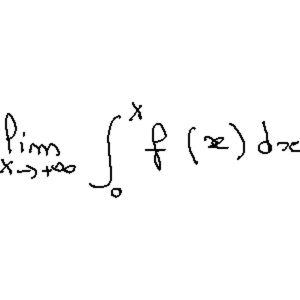 lim_{X→+∞} ∫_0^X f(x)dx